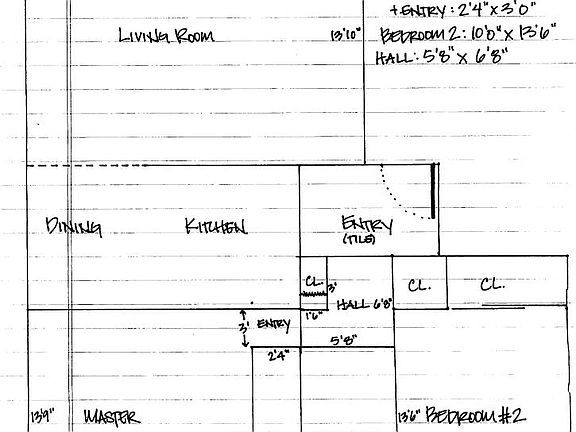 +ENTRY: 2'4" X 3'0"
LIVING ROOM
13'10"
BEDROOM 2: 10'0" X 13'6"
HALL: 5'8" X 6'8"
DINING
KITCHEN
ENTRY
(TILE)
CL.
3'
CL.
CL.
HALL 6'8"
1'6"
3'
ENTRY
5'8"
2'4"
13'9"
MASTER
13'6"
BEDROOM #2